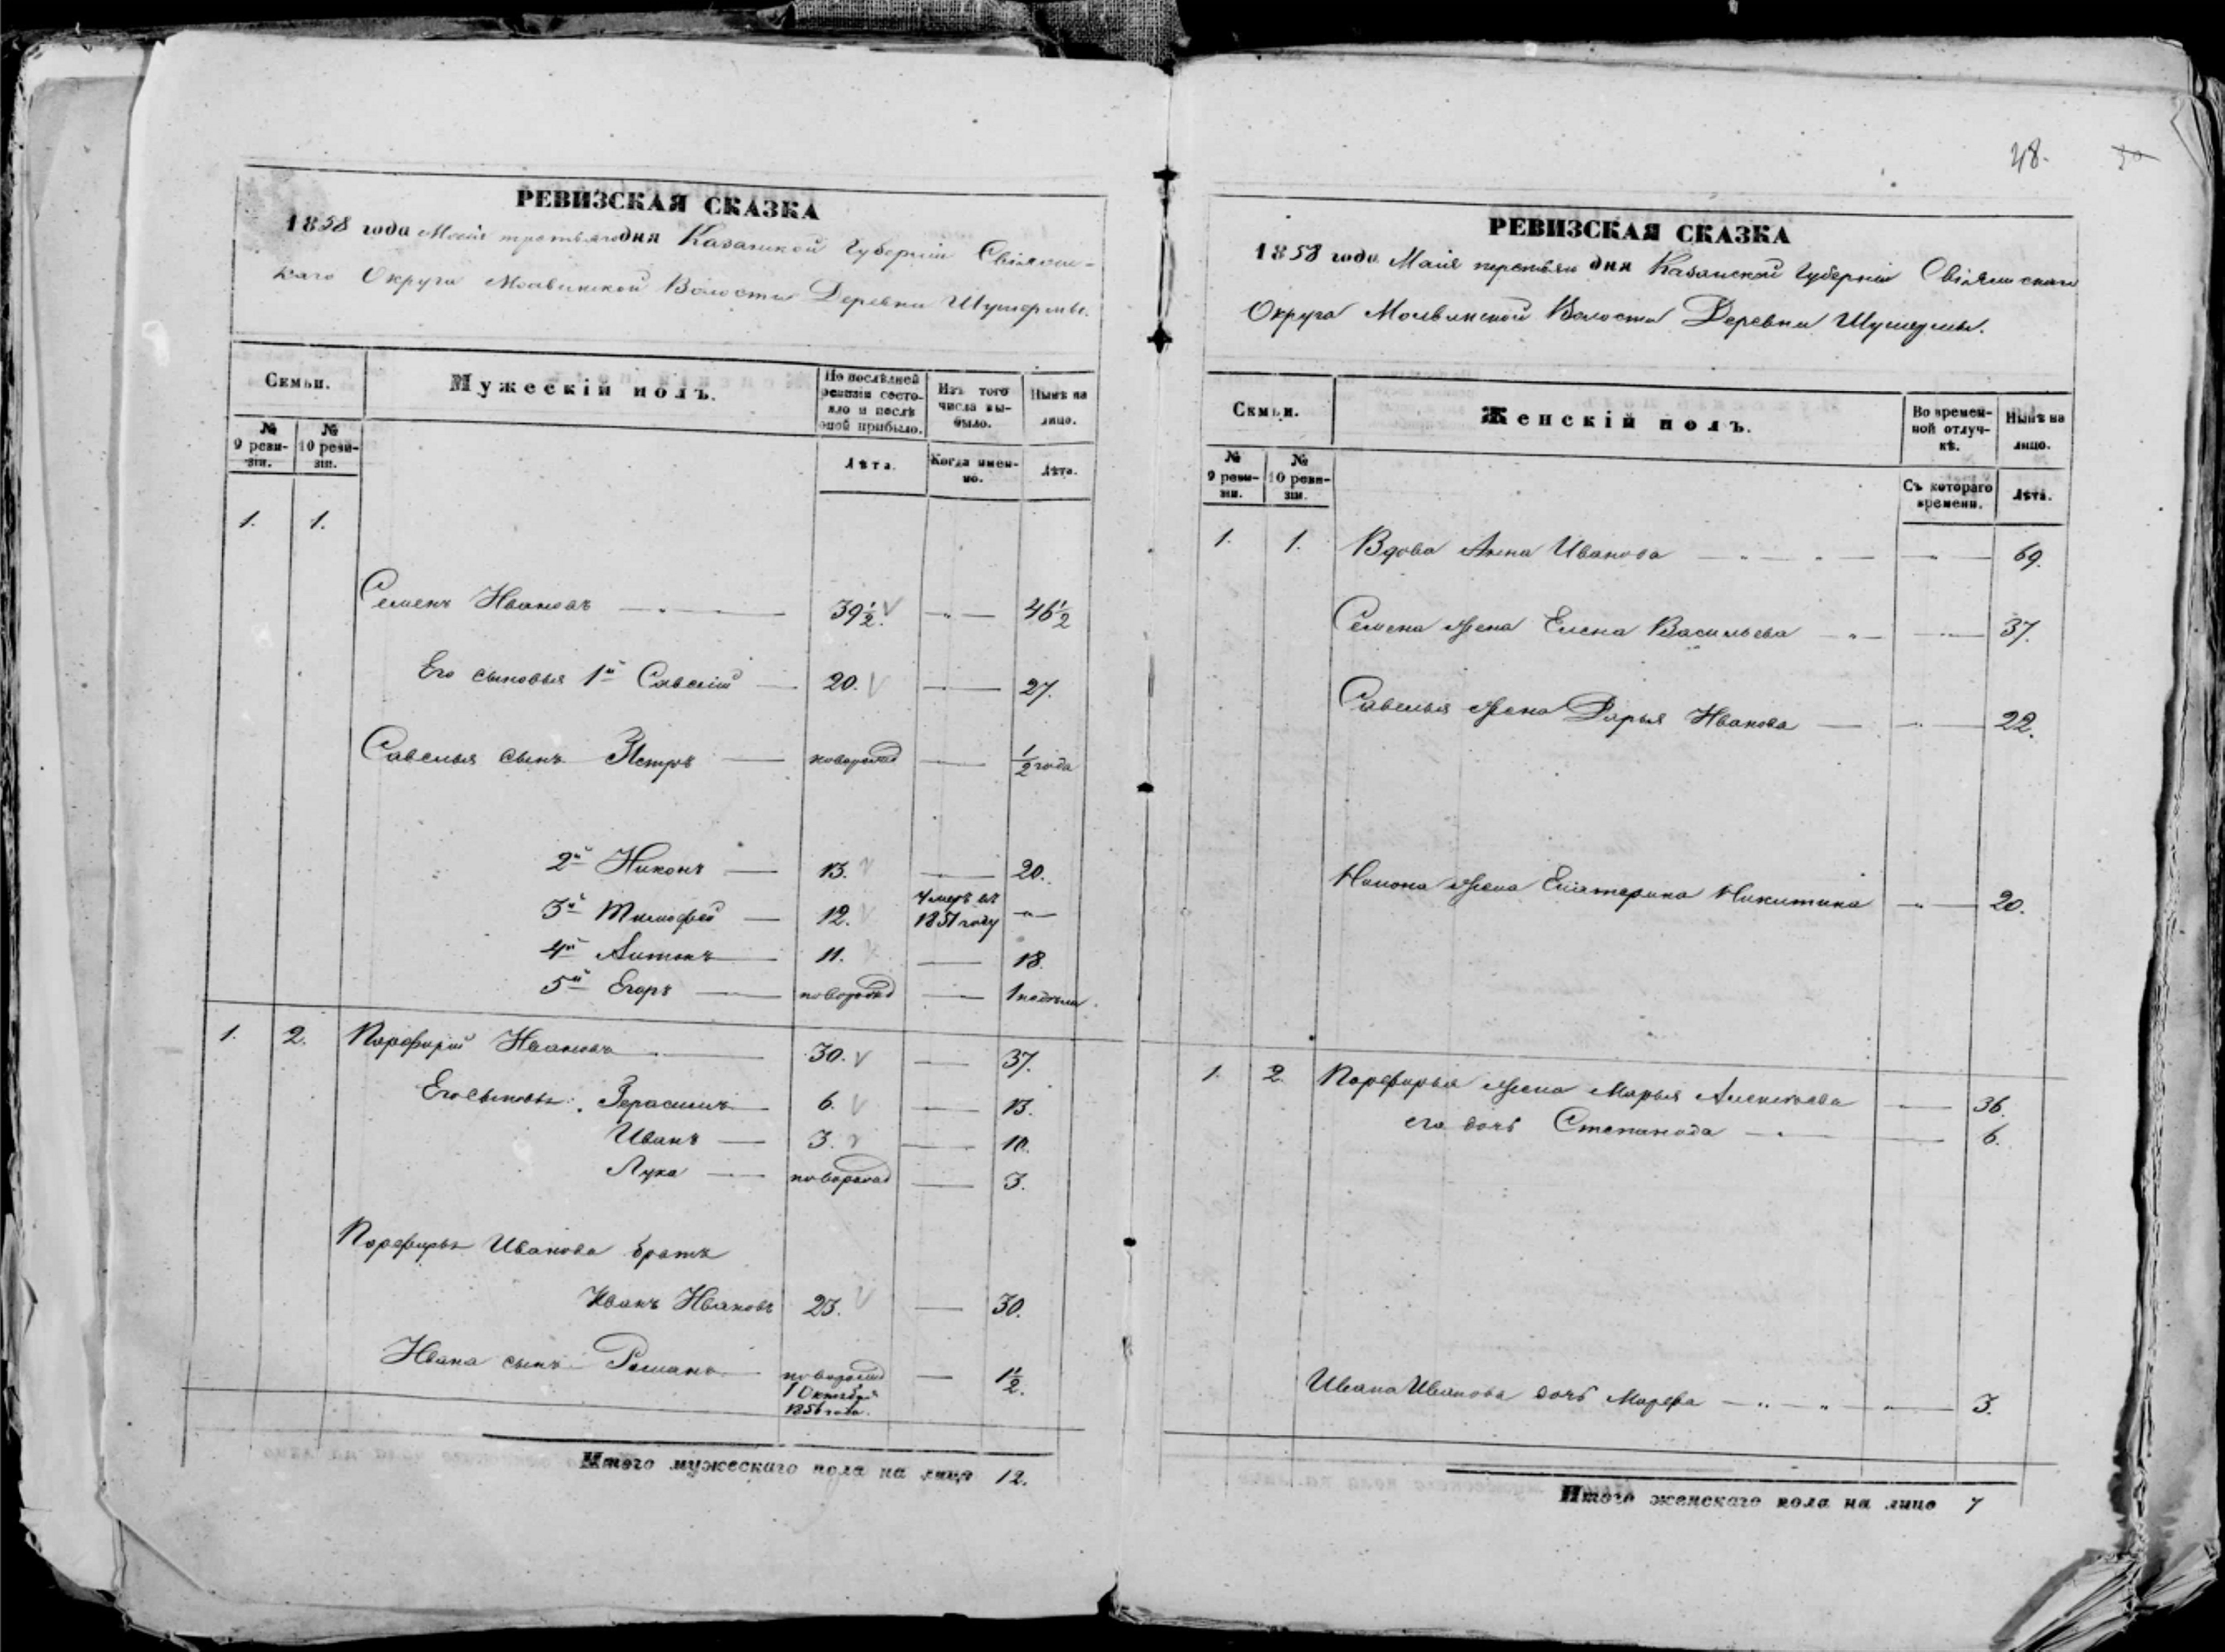 РЕВИЗСКАЯ СКАЗКА
1858 года Маія третьяго дня Казанской Губерніи Свіяжс-
каго Округа Молвинской Волости Деревни Шушермы.
Семьи.
Мужескій полъ.
По послѣдней ревизіи состояло и послѣ оной прибыло.
Изъ того числа выбыло.
Нынѣ на лицо.
№ 9 ревизіи.
№ 10 ревизіи.
Лѣта.
Когда именно.
Лѣта.
1. 1.
Семенъ Ивановъ 39 1/2. 46 1/2
Его сыновья 1й Савелій 20. 27.
Савелья сынъ Петръ новорожд 1/2 года
2й Никонъ 13. 20.
3й Тимофей 12. Умеръ въ 1851 году
4й Антонъ 11. 18.
5й Егоръ новорожд 1 недѣли
1. 2. Порфирій Ивановъ 30. 37.
Его сыновья: Герасимъ 6. 13.
Иванъ 3. 10.
Лука новорожд 3.
Порфирья Иванова братъ
Иванъ Ивановъ 23. 30.
Ивана сынъ Романъ новорожд 1 1/2.
1 Октября
1856 года.
Итого мужескаго пола на лицо 12.
48.
РЕВИЗСКАЯ СКАЗКА
1858 года Маія третьяго дня Казанской Губерніи Свіяжскаго
Округа Молвинской Волости Деревни Шушермы.
Семьи.
Женскій полъ.
Во временной отлучкѣ.
Нынѣ на лицо.
№ 9 ревизіи.
№ 10 ревизіи.
Съ котораго времени.
Лѣта.
1. 1. Вдова Анна Иванова 69.
Семена жена Елена Васильева 37.
Савелья жена Дарья Иванова 22.
Никона жена Екатерина Никитина 20.
1. 2. Порфирья жена Марья Алексѣева 36.
его дочь Степанида 6.
Ивана Иванова дочь Марфа 3.
Итого женскаго пола на лицо 7